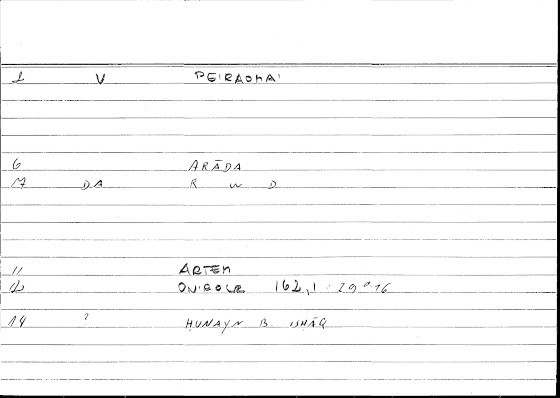 1 V PEIRAOMAI
6 ARĀDA
17 DA R W D
11 ARTEM
12 ONIROCR 162,1 : 29°16
14 ? HUNAYN B. ISHĀQ